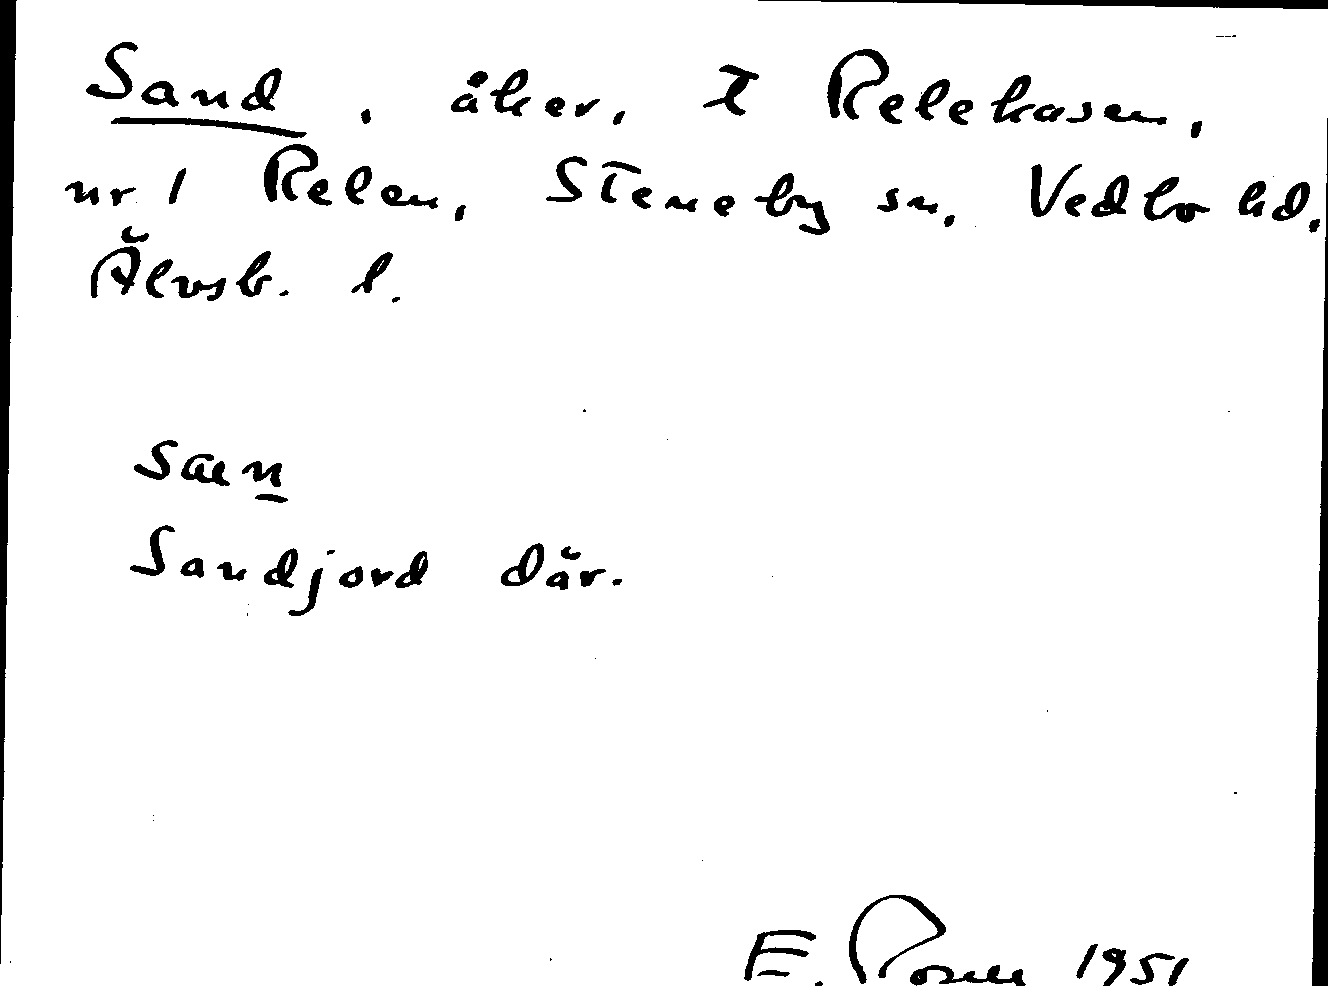 Sand, åker, t Relekasen,
nr 1 Relen, Steneby sn, Vedbo hd.
Älvsb. l.
saen
Sandjord där.
E. Rosell 1951